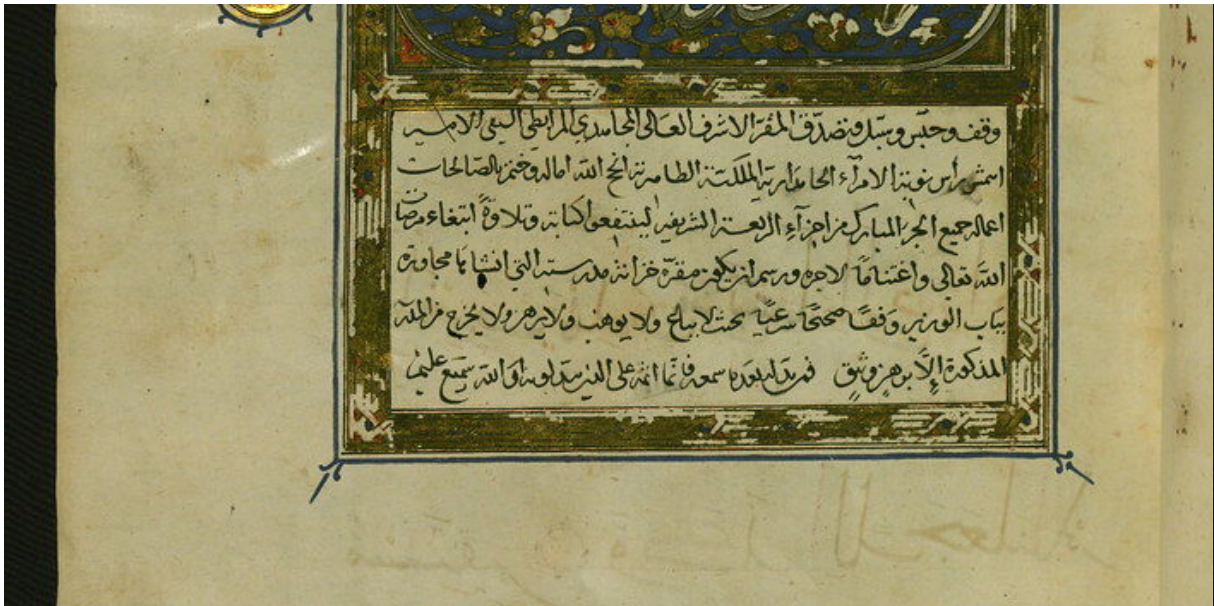 وقف وحبّس وسبّل وتصدّق المقرّ الاشرف العالى المجاهدي المرابطي السيفي الامير
رأس نوبة الامرآء الجامدارية الملكيّة الظاهرية انجح الله اماله وختم بالصّالحات
اعماله جميع الجزء المبارك من اجزآءِ الربعة الشريفة لينتفعوا كتابة وتلاوةً ابتغاء مرضات
الله تعالى واغتنامًا لاجره ورسم ان يكون مقرّه خزانة مدرسته التى انشاها مجاورة
بباب الوزير وقفًا صحيحًا شرعيًّا بحيث لا يباع ولا يوهب ولا يرهن ولا يخرج من
المذكورة إلّا برهنٍ وثيقٍ فمن بدّله بعده سمعه فانّما اثمه على الذين يبدّلونه ان الله سميع عليم